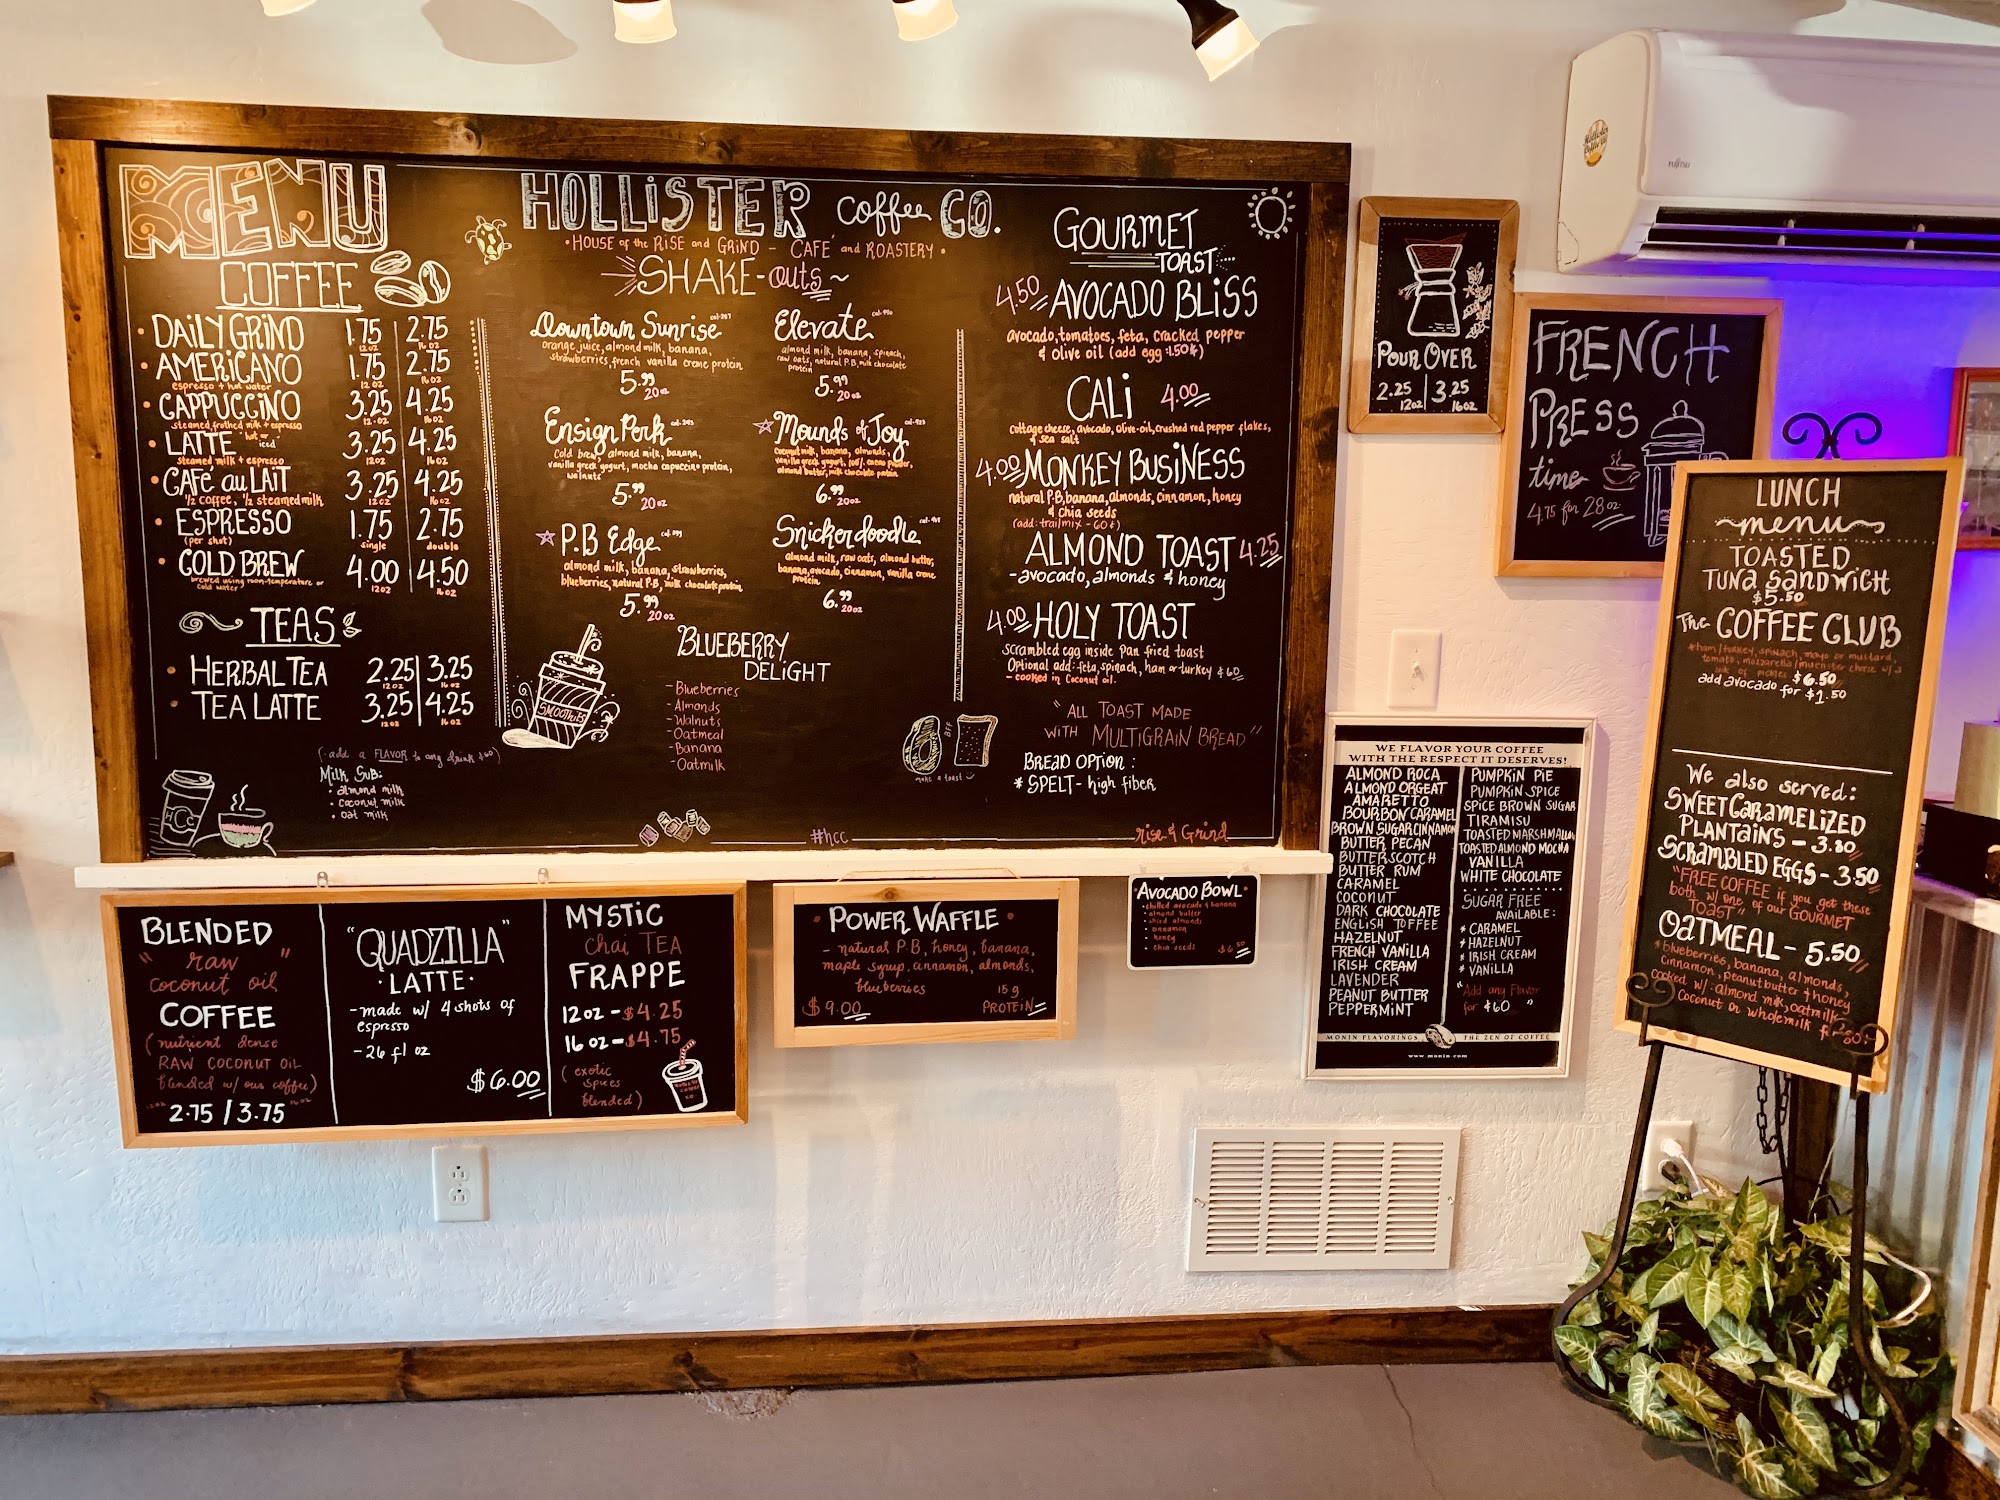 MENU
COFFEE
DAILY GRIND 1.75 | 2.75
12oz 16oz
AMERICANO 1.75 | 2.75
espresso + hot water 12oz 16oz
CAPPUCCINO 3.25 | 4.25
steamed, frothed milk + espresso 12oz 16oz
LATTE "hot or iced" 3.25 | 4.25
steamed milk + espresso 12oz 16oz
CAFE au LAIT 3.25 | 4.25
1/2 coffee, 1/2 steamed milk 12oz 16oz
ESPRESSO 1.75 | 2.75
(per shot) single double
COLD BREW 4.00 | 4.50
brewed using room-temperature or cold water 12oz 16oz
TEAS
HERBAL TEA 2.25 | 3.25
12oz 16oz
TEA LATTE 3.25 | 4.25
12oz 16oz
(add a FLAVOR to any drink $.60)
Milk Sub:
- almond milk
- coconut milk
- oat milk
HCC
HOLLISTER coffee CO.
• HOUSE of the RISE and GRIND - CAFE and ROASTERY •
SHAKE-outs~
Downtown Sunrise
orange juice, almond milk, banana,
strawberries, french vanilla creme protein
5.99
20oz
Elevate
almond milk, banana, spinach,
raw oats, natural P.B, milk chocolate
protein
5.99
20oz
Ensign Perk
Cold brew, almond milk, banana,
vanilla greek yogurt, mocha capuccino protein,
walnuts
5.99
20oz
Mounds of Joy
coconut milk, banana, almonds,
vanilla greek yogurt, 100% cacao powder,
almond butter, milk chocolate protein
6.99
20oz
P.B Edge
almond milk, banana, strawberries,
blueberries, natural P.B, milk chocolate protein
5.99
20oz
Snickerdoodle
almond milk, raw oats, almond butter,
banana, avocado, cinnamon, vanilla creme
protein
6.99
20oz
SMOOTHIES
BLUEBERRY
DELIGHT
- Blueberries
- Almonds
- Walnuts
- Oatmeal
- Banana
- Oatmilk
#hcc
GOURMET
TOAST
4.50 AVOCADO BLISS
avocado, tomatoes, feta, cracked pepper
& olive oil (add egg :1.50)
CALI 4.00
cottage cheese, avocado, olive-oil, crushed red pepper flakes,
& sea salt
4.00 MONKEY BUSINESS
natural P.B, banana, almonds, cinnamon, honey
& chia seeds
(add: trailmix - 60¢)
ALMOND TOAST 4.25
- avocado, almonds & honey
4.00 HOLY TOAST
scrambled egg inside pan fried toast
Optional add: feta, spinach, ham or turkey $.60
- cooked in coconut oil.
"ALL TOAST MADE
WITH MULTIGRAIN BREAD"
BREAD OPTION:
* SPELT - high fiber
BFF
make a toast
rise & Grind
POUR OVER
2.25 | 3.25
12oz 16oz
FRENCH
PRESS
time
4.75 for 28 oz
FUJITSU
LUNCH
menu
TOASTED
TUNA SANDWICH
$5.50
The COFFEE CLUB
*ham/turkey, spinach, mayo or mustard,
tomato, mozzarella/muenster cheese w/ a
side of pickles $6.50
add avocado for $1.50
We also served:
SWEET CARAMELIZED
PLANTAINS - 3.80
SCRAMBLED EGGS - 3.50
"FREE COFFEE if you get these
both w/ one of our GOURMET
TOAST"
OATMEAL - 5.50
*blueberries, banana, almonds,
cinnamon, peanut butter & honey
cooked w/ almond milk, oatmilk,
coconut or whole milk
WE FLAVOR YOUR COFFEE
WITH THE RESPECT IT DESERVES!
ALMOND ROCA
ALMOND ORGEAT
AMARETTO
BOURBON CARAMEL
BROWN SUGAR CINNAMON
BUTTER PECAN
BUTTERSCOTCH
BUTTER RUM
CARAMEL
COCONUT
DARK CHOCOLATE
ENGLISH TOFFEE
HAZELNUT
FRENCH VANILLA
IRISH CREAM
LAVENDER
PEANUT BUTTER
PEPPERMINT
PUMPKIN PIE
PUMPKIN SPICE
SPICE BROWN SUGAR
TIRAMISU
TOASTED MARSHMALLOW
TOASTED ALMOND MOCHA
VANILLA
WHITE CHOCOLATE
SUGAR FREE
AVAILABLE:
* CARAMEL
* HAZELNUT
* IRISH CREAM
* VANILLA
"Add any Flavor
for $.60"
MONIN FLAVORINGS THE ZEN OF COFFEE
www.monin.com
BLENDED
"raw"
coconut oil
COFFEE
(nutrient dense
RAW COCONUT OIL
blended w/ our coffee)
2.75 / 3.75
"QUADZILLA"
LATTE
- made w/ 4 shots of
espresso
- 26 fl oz
$6.00
MYSTIC
Chai TEA
FRAPPE
12 oz - $4.25
16 oz - $4.75
(exotic
spices
blended)
• POWER WAFFLE •
- natural P.B, honey, banana,
maple syrup, cinnamon, almonds,
blueberries
$9.00 15g
PROTEIN
AVOCADO BOWL
• chilled avocado & banana
• almond butter
• sliced almonds
• cinnamon
• honey
• chia seeds